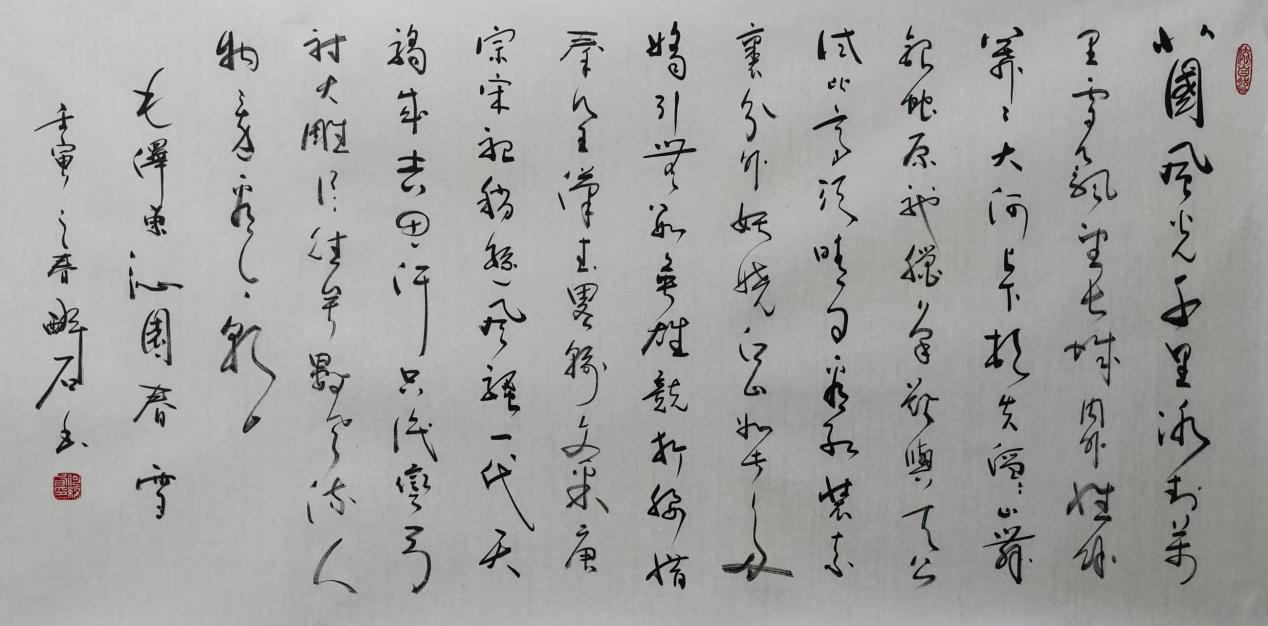 北国風光千里冰封万
里雪飘望长城内外惟余
莽々大河上下顿失滔々山舞
银蛇原驰腊象欲与天公
试比高须晴日看红装素
裹分外妖娆江山如此多
娇引无数英雄竞折腰惜
秦皇汉武略输文采唐
宗宋祖稍逊风骚一代天
骄成吉思汗只识弯弓
射大雕俱往矣数风流人
物还看今朝
毛泽东沁園春雪
壬寅之春醉石书